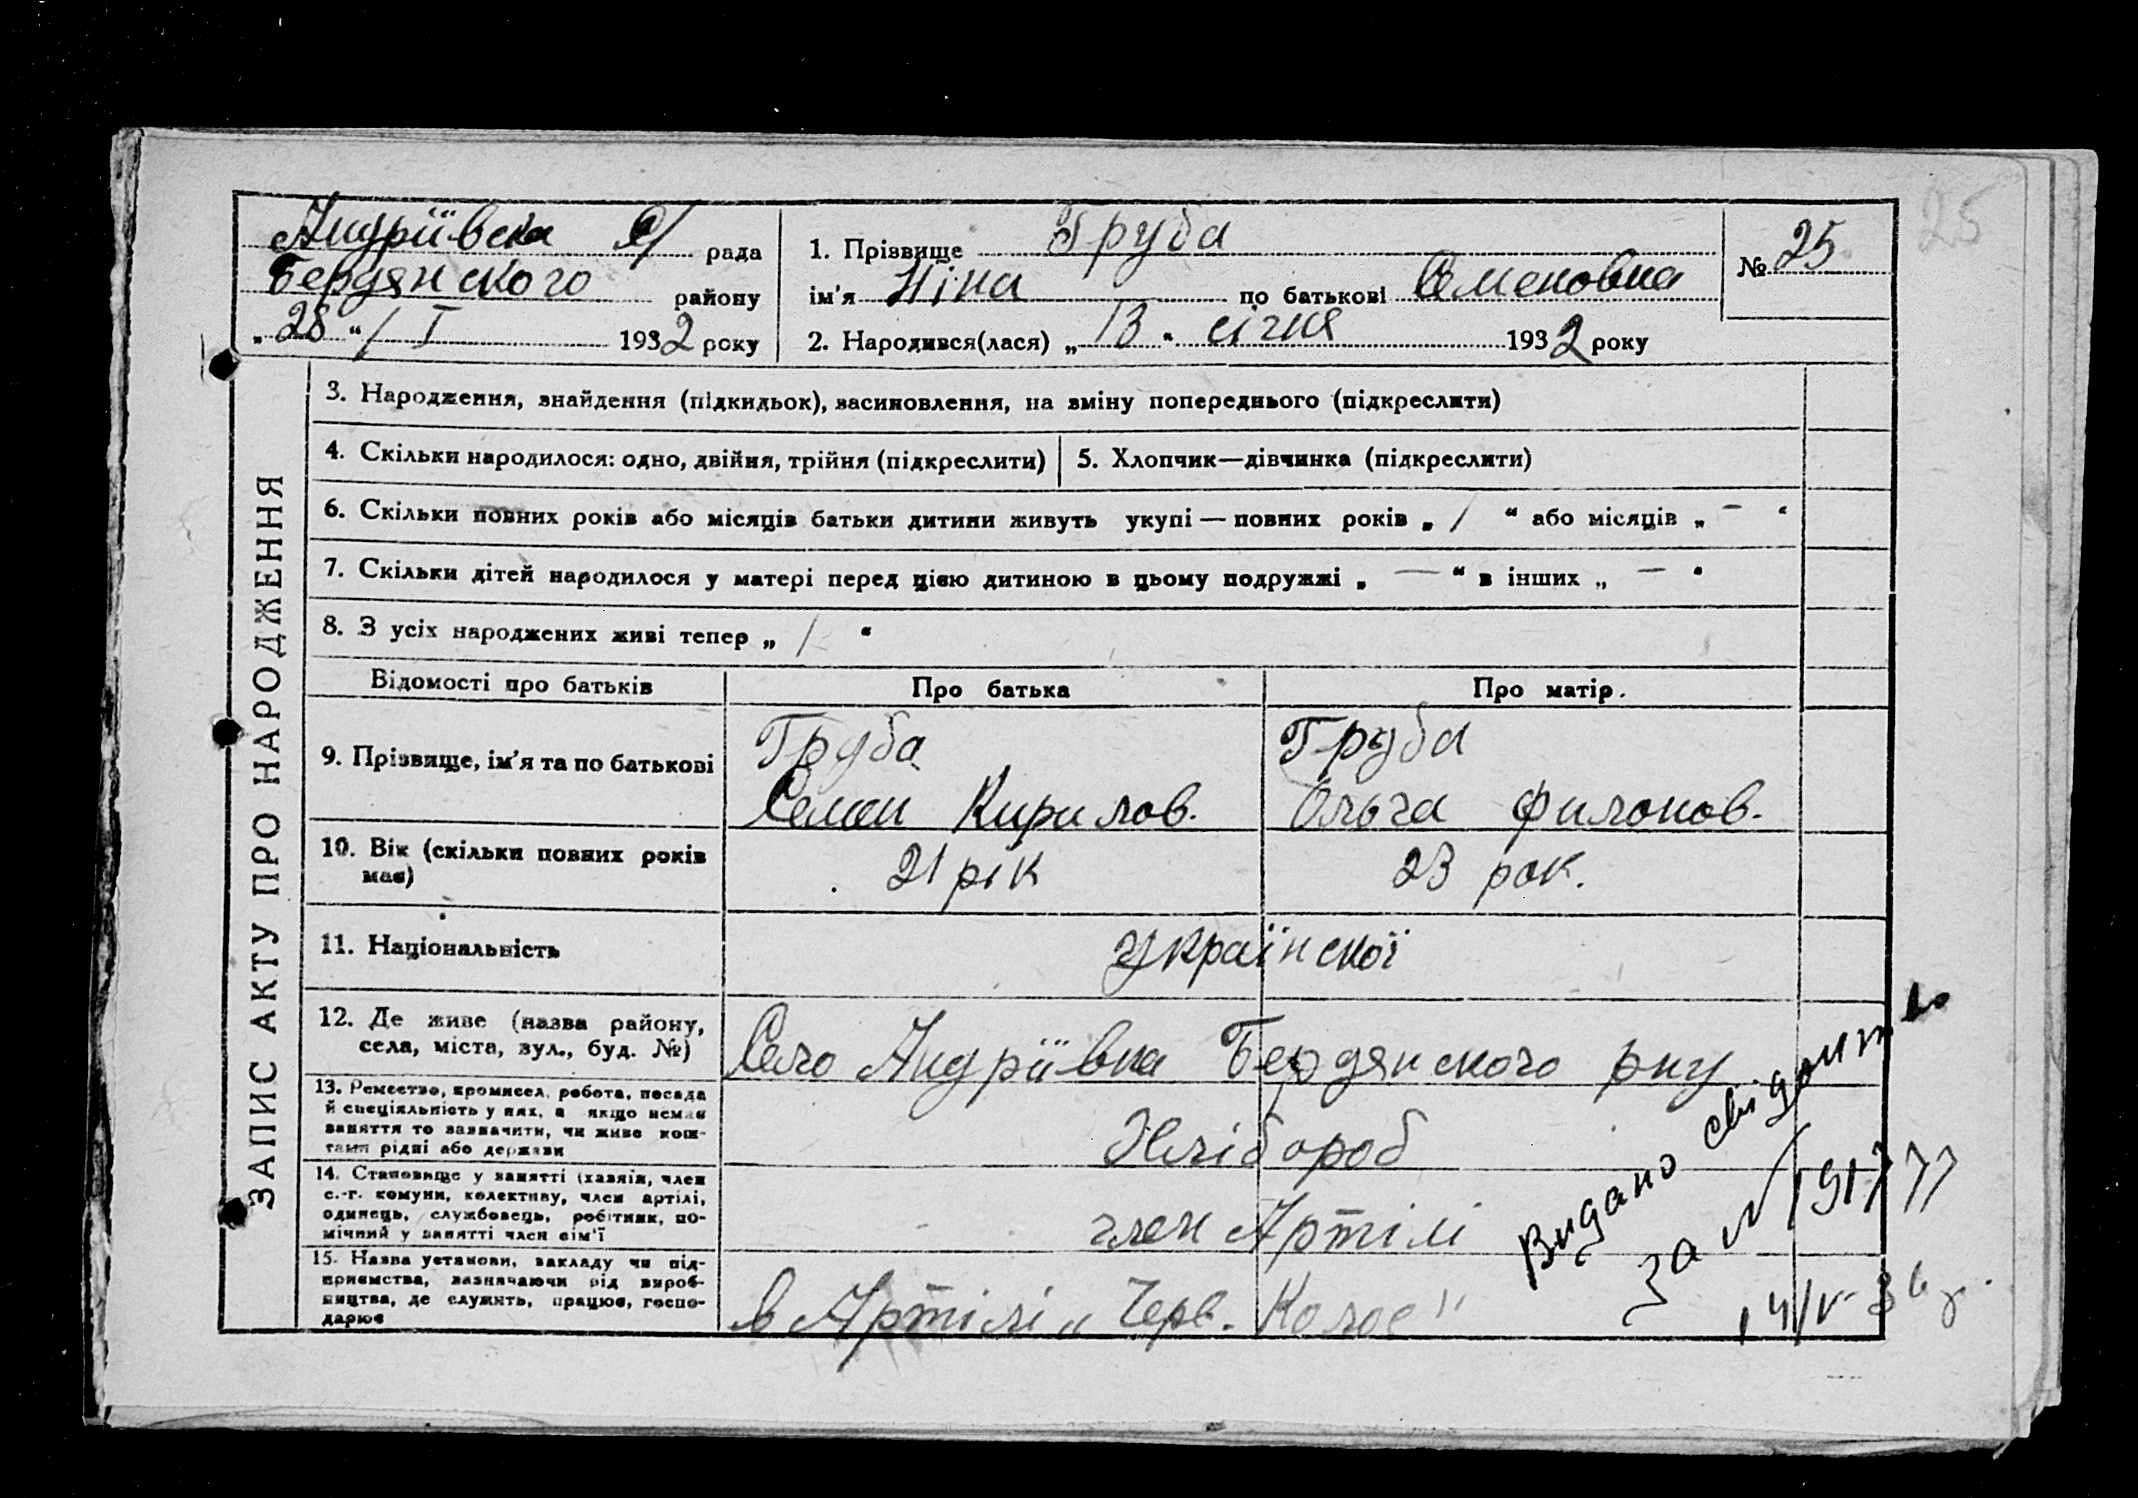 25
Андріївска С/ рада
Бердянского району
„28“ / I 1932 року
1. Прізвище Груба
ім'я Ніна по батькові Семеновна
2. Народився(лася) „13“ січня 1932 року
№ 25
ЗАПИС АКТУ ПРО НАРОДЖЕННЯ
3. Народження, знайдення (підкидьок), засиновлення, на зміну попереднього (підкреслити)
4. Скільки народилося: одно, двійня, трійня (підкреслити)
5. Хлопчик—дівчинка (підкреслити)
6. Скільки повних років або місяців батьки дитини живуть укупі — повних років „ / “ або місяців „ — “
7. Скільки дітей народилося у матері перед цією дитиною в цьому подружжі „ — “ в інших „ — “
8. З усіх народжених живі тепер „ / “
Відомості про батьків
Про батька
Про матір.
9. Прізвище, ім'я та по батькові
Груба
Семен Кирилов.
Груба
Ольга Филонов.
10. Вік (скільки повних років
має)
21 рік
23 рок.
11. Національність
Української
12. Де живе (назва району,
села, міста, вул., буд. №)
Село Андріївка Бердянского рну
13. Ремество, промисел, робота, посада
й спеціяльність у них, а якщо немає
заняття то зазначити, чи живе кош-
тами рідні або держави
Хлібороб
14. Становище у занятті (хазяїн, член
с.-г. комуни, колективу, член артілі,
одинець, службовець, робітник, по-
мічний у занятті член сім'ї
член Артілі
15. Назва установи, закладу чи під-
приємства, зазначаючи рід вироб-
ництва, де служить, працює, госпо-
дарює
в Артілі „Черв. Колос"
Видано свідоитво
за №
14/V-36 р.